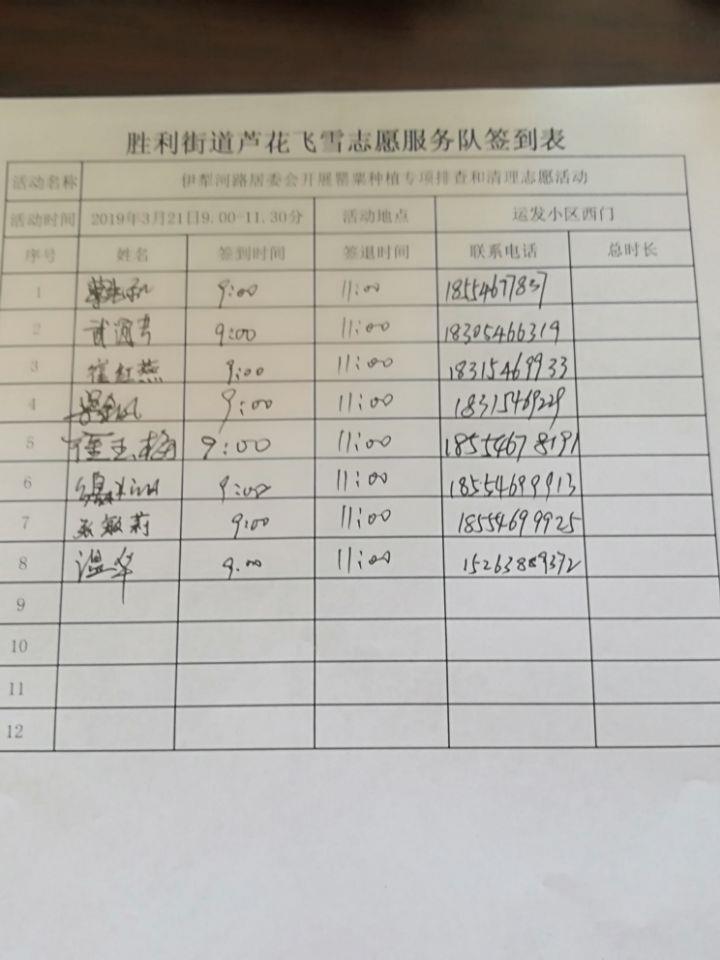 胜利街道芦花飞雪志愿服务队签到表
活动名称 伊犁河路居委会开展罂粟种植专项排查和清理志愿活动
活动时间 2019年3月21日9.00-11.30分 活动地点 运发小区西门
序号 姓名 签到时间 签退时间 联系电话 总时长
1 9:00 11:00 18554677837
2 9:00 11:00 18305466319
3 崔红燕 9:00 11:00 18315469933
4 9:00 11:00 18315469229
5 9:00 11:00 18554678191
6 9:00 11:00 18554699913
7 张敏莉 9:00 11:00 18554699925
8 温华 9.00 11:00
9
10
11
12